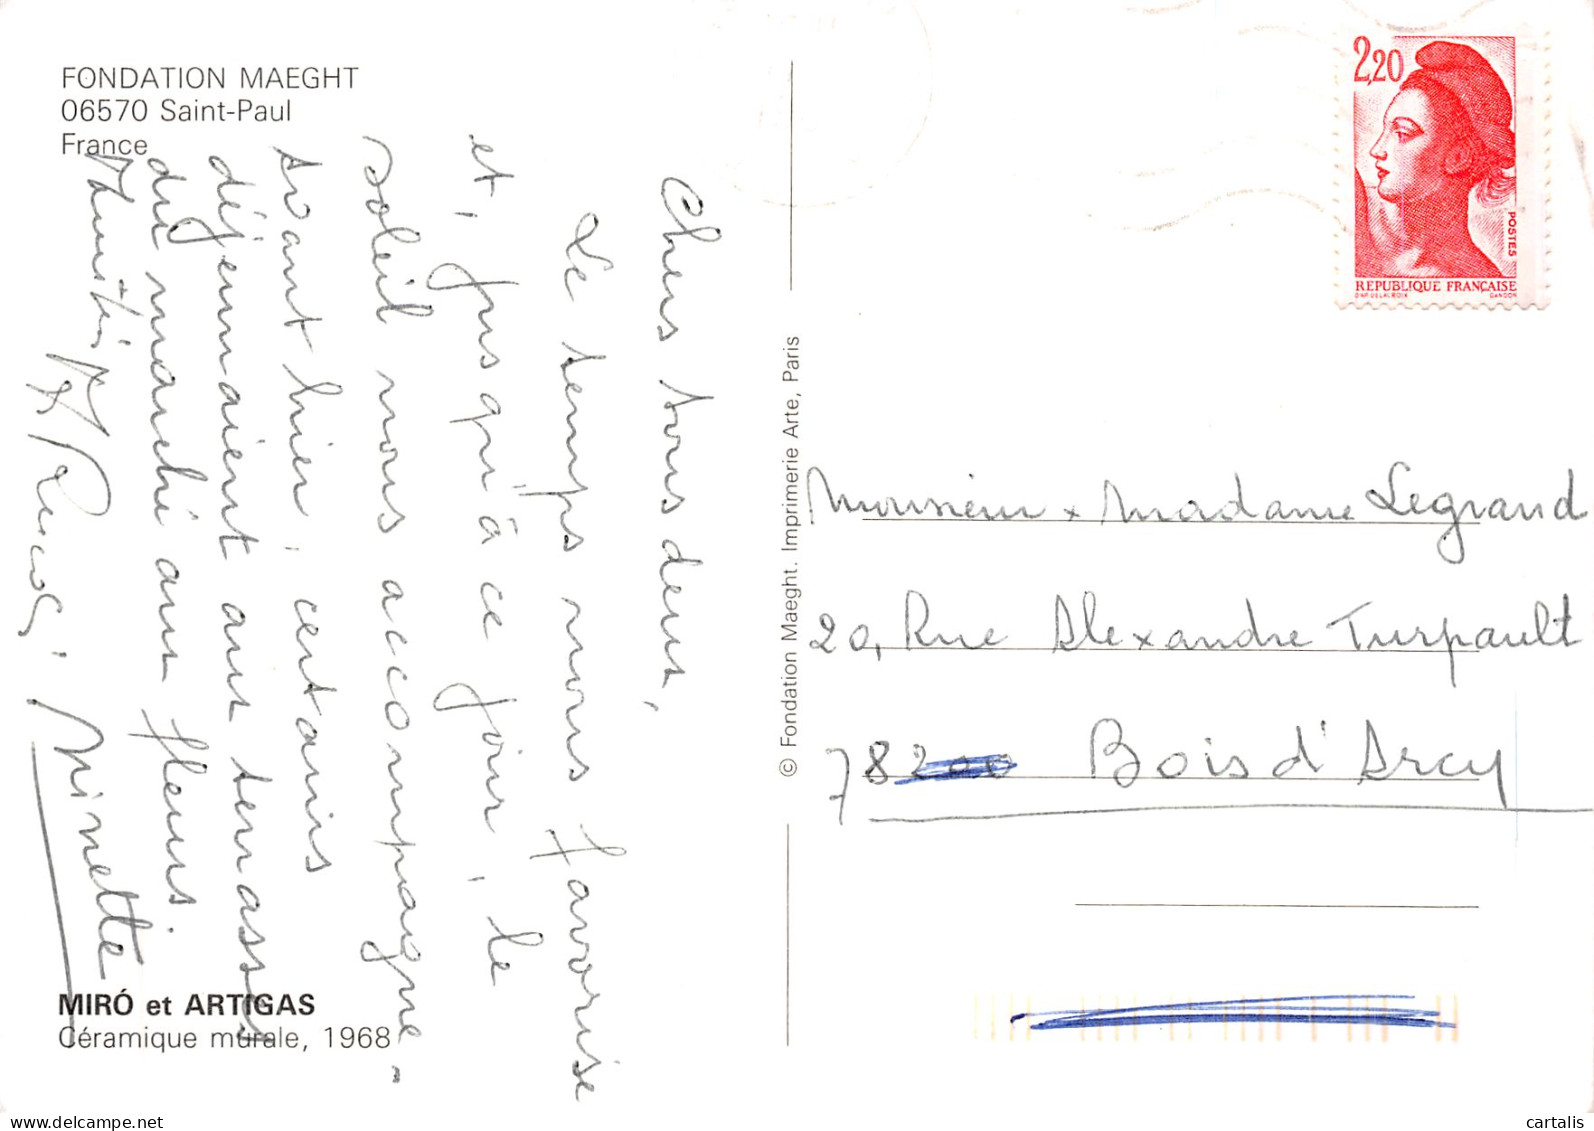 FONDATION MAEGHT
06570 Saint-Paul
France
Chers tous deux,
Le temps nous favorise
et, jusqu'à ce jour, le
soleil nous accompagne.
Avant hier, certains
déjeunaient aux terrasses
du marché aux fleurs.
Amitiés
Minette
MIRÓ et ARTIGAS
Céramique murale, 1968
© Fondation Maeght. Imprimerie Arte, Paris
2,20
POSTES
REPUBLIQUE FRANÇAISE
D'AP. DELACROIX GANDON
Monsieur x Madame Legrand
20, Rue Alexandre Turpault
78200 Bois d'Arcy
cartalis | www.delcampe.net